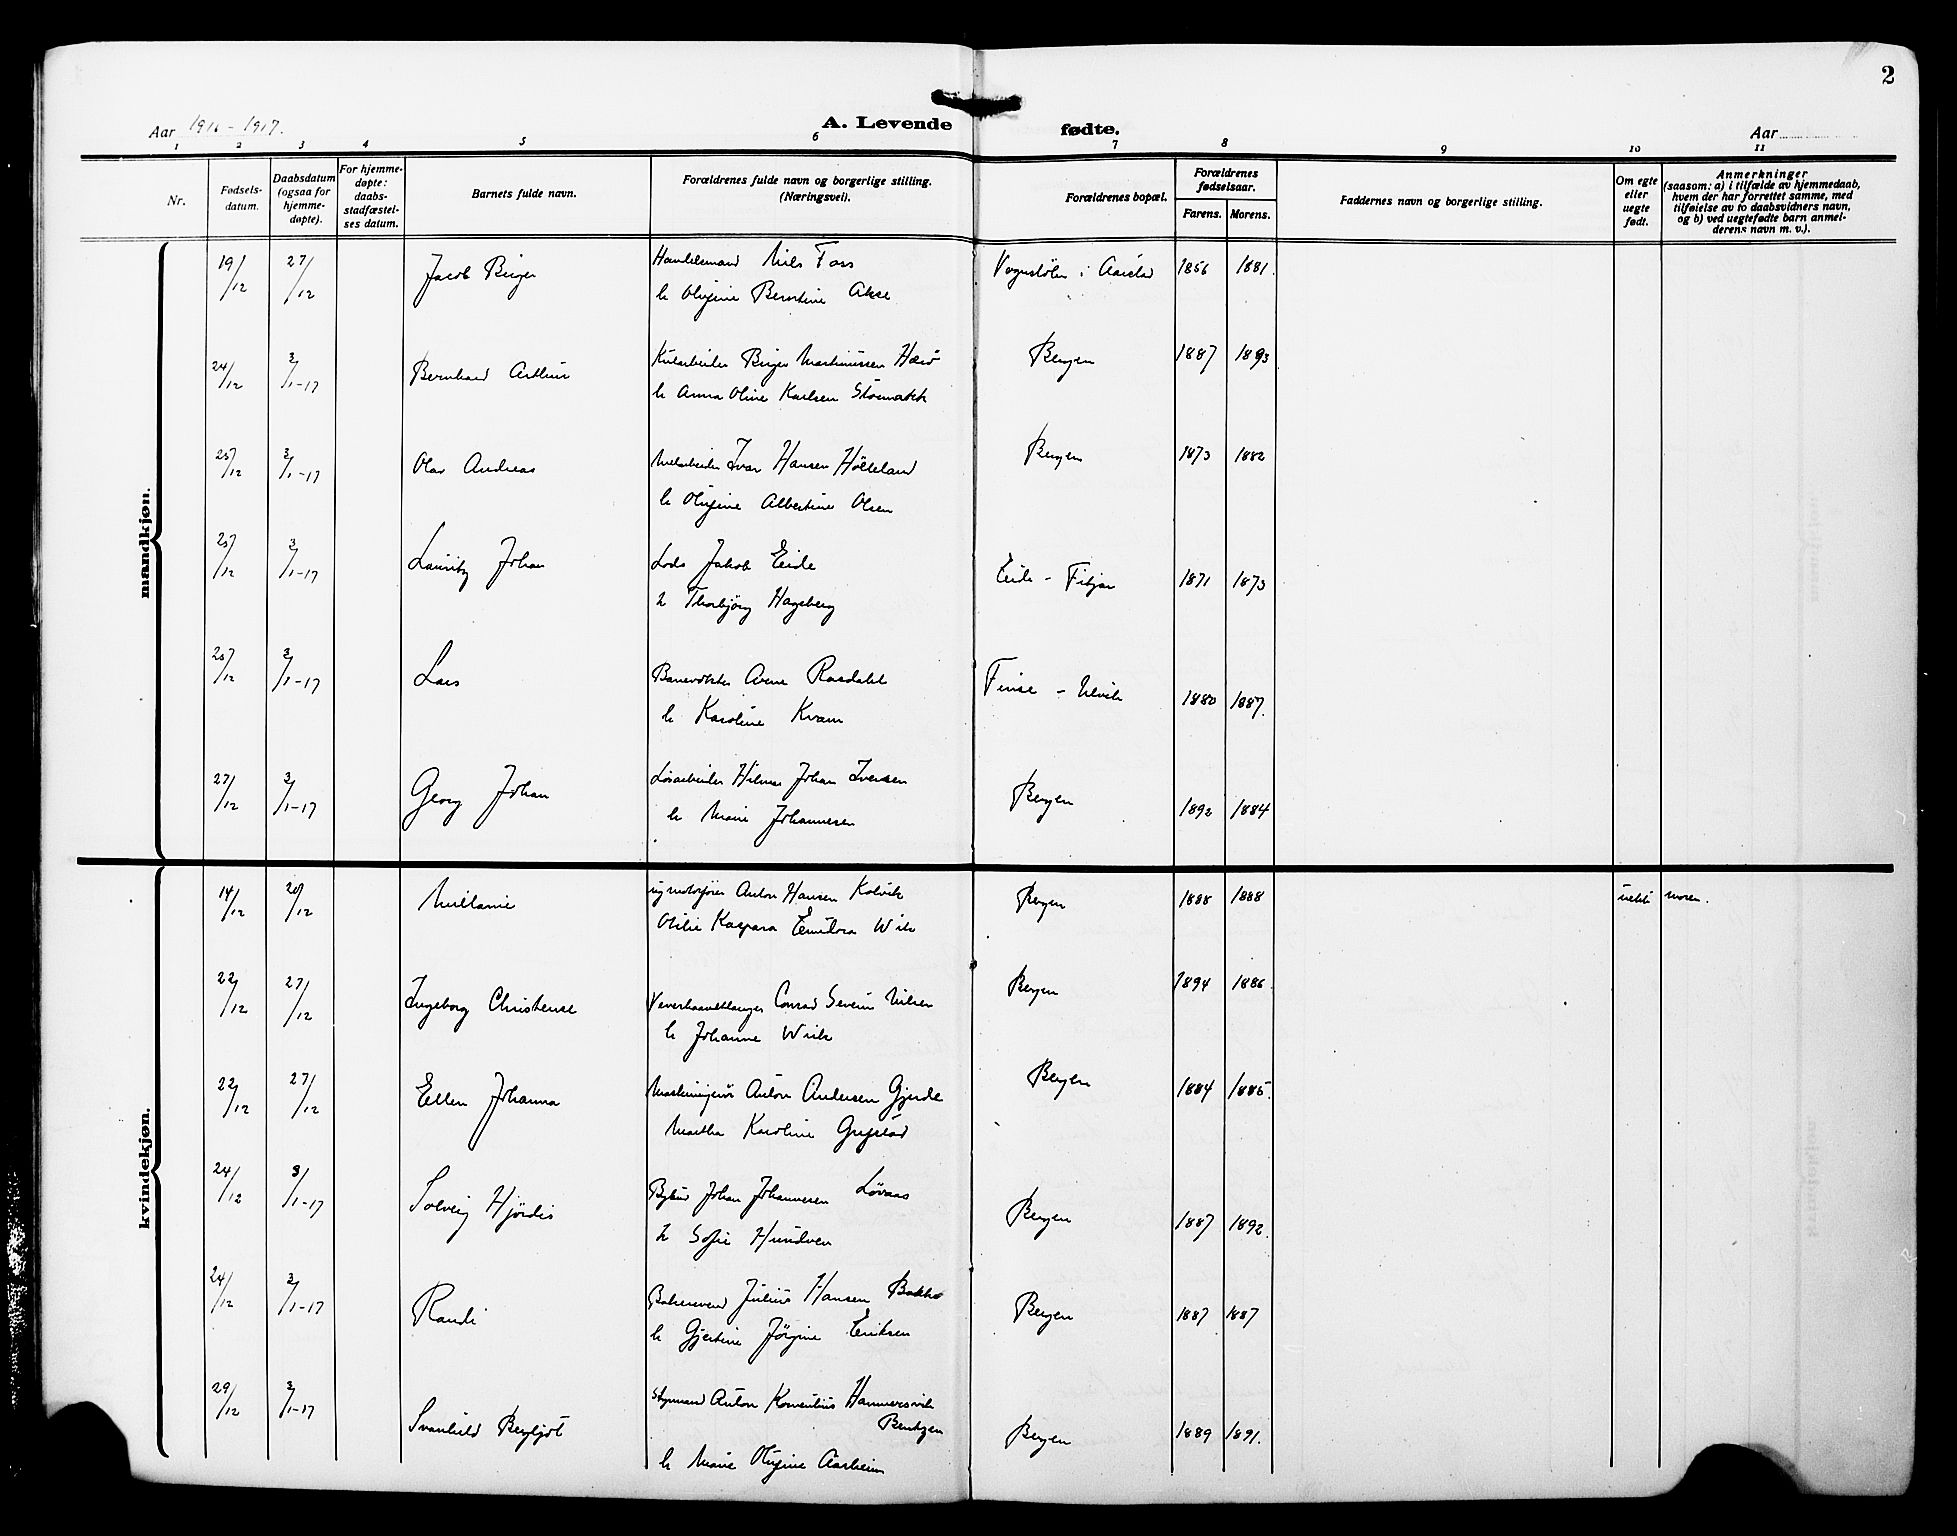 2
Aar 1916-1917.
A. Levende fødte.
Aar
1 2 3 4 5 6 7 8 9 10 11
Nr.
Fødsels-
datum.
Daabsdatum
(ogsaa for
hjemme-
døpte).
For hjemme-
døpte:
daabs-
stadfæstel-
ses datum.
Barnets fulde navn.
Forældrenes fulde navn og borgerlige stilling.
(Næringsvei).
Forældrenes bopæl.
Forældrenes
fødselsaar.
Farens. Morens.
Faddernes navn og borgerlige stilling.
Om egte
eller
uegte
født.
Anmerkninger
(saasom: a) i tilfælde av hjemmedaab,
hvem der har forrettet samme, med
tilføielse av to daabsvidners navn,
og b) ved uegtefødte barn anmel-
derens navn m. v.).
mandkjøn.
19/12 27/12 Jacob Birger Handelsmand Niels Foss i Aarstad 1856 1881.
h Olufine Berntine Akse
24/12 3/1-17 Bernhard Arthur Birger Martinussen Bergen 1887 1893
h Anna Oline Karlsen
25/12 3/1-17 Olav Andreas Ivar Hansen Bergen 1873 1882
h Olufine Albertine Olsen
25/12 3/1-17 Lauritz Johan Lods Jakob Eide Eide - Fitjar 1871 1873
h Thorbjörg Hageberg
25/12 3/1-17 Lars Banevokter Arne Rosdahl Finse - Ulvik 1880 1887.
h Karoline Kvam
27/12 3/1-17 Georg Johan Løsarbeider Hilmar Johan Iversen Bergen 1892 1884
h Marie Johannesen
kvindekjøn.
14/12 20/12 Millanie Anton Hansen Kolvik Bergen 1888 1888 uekte moren.
Otilie Kaspara Wik
22/12 27/12 Ingeborg Christense Conrad Severin Nilsen Bergen 1894 1886
h Johanne Wiik
22/12 27/12 Ellen Johanna Anton Andersen Gjerde Bergen 1884 1885.
Martha Karoline
24/12 3/1-17 Solveig Hjördis Bybud Johan Johannesen Løvaas Bergen 1887 1892.
h Sofie Hundven
24/12 3/1-17 Randi Bakersvend Julius Hansen Bakke Bergen 1887 1887
h Gjertine Jörgine Eriksen
29/12 3/1-17 Svanhild Bergljot Styrmand Anton Kornelius Hammersvik
Berntzen Bergen 1889 1891.
h Marie Olufine Aarheim